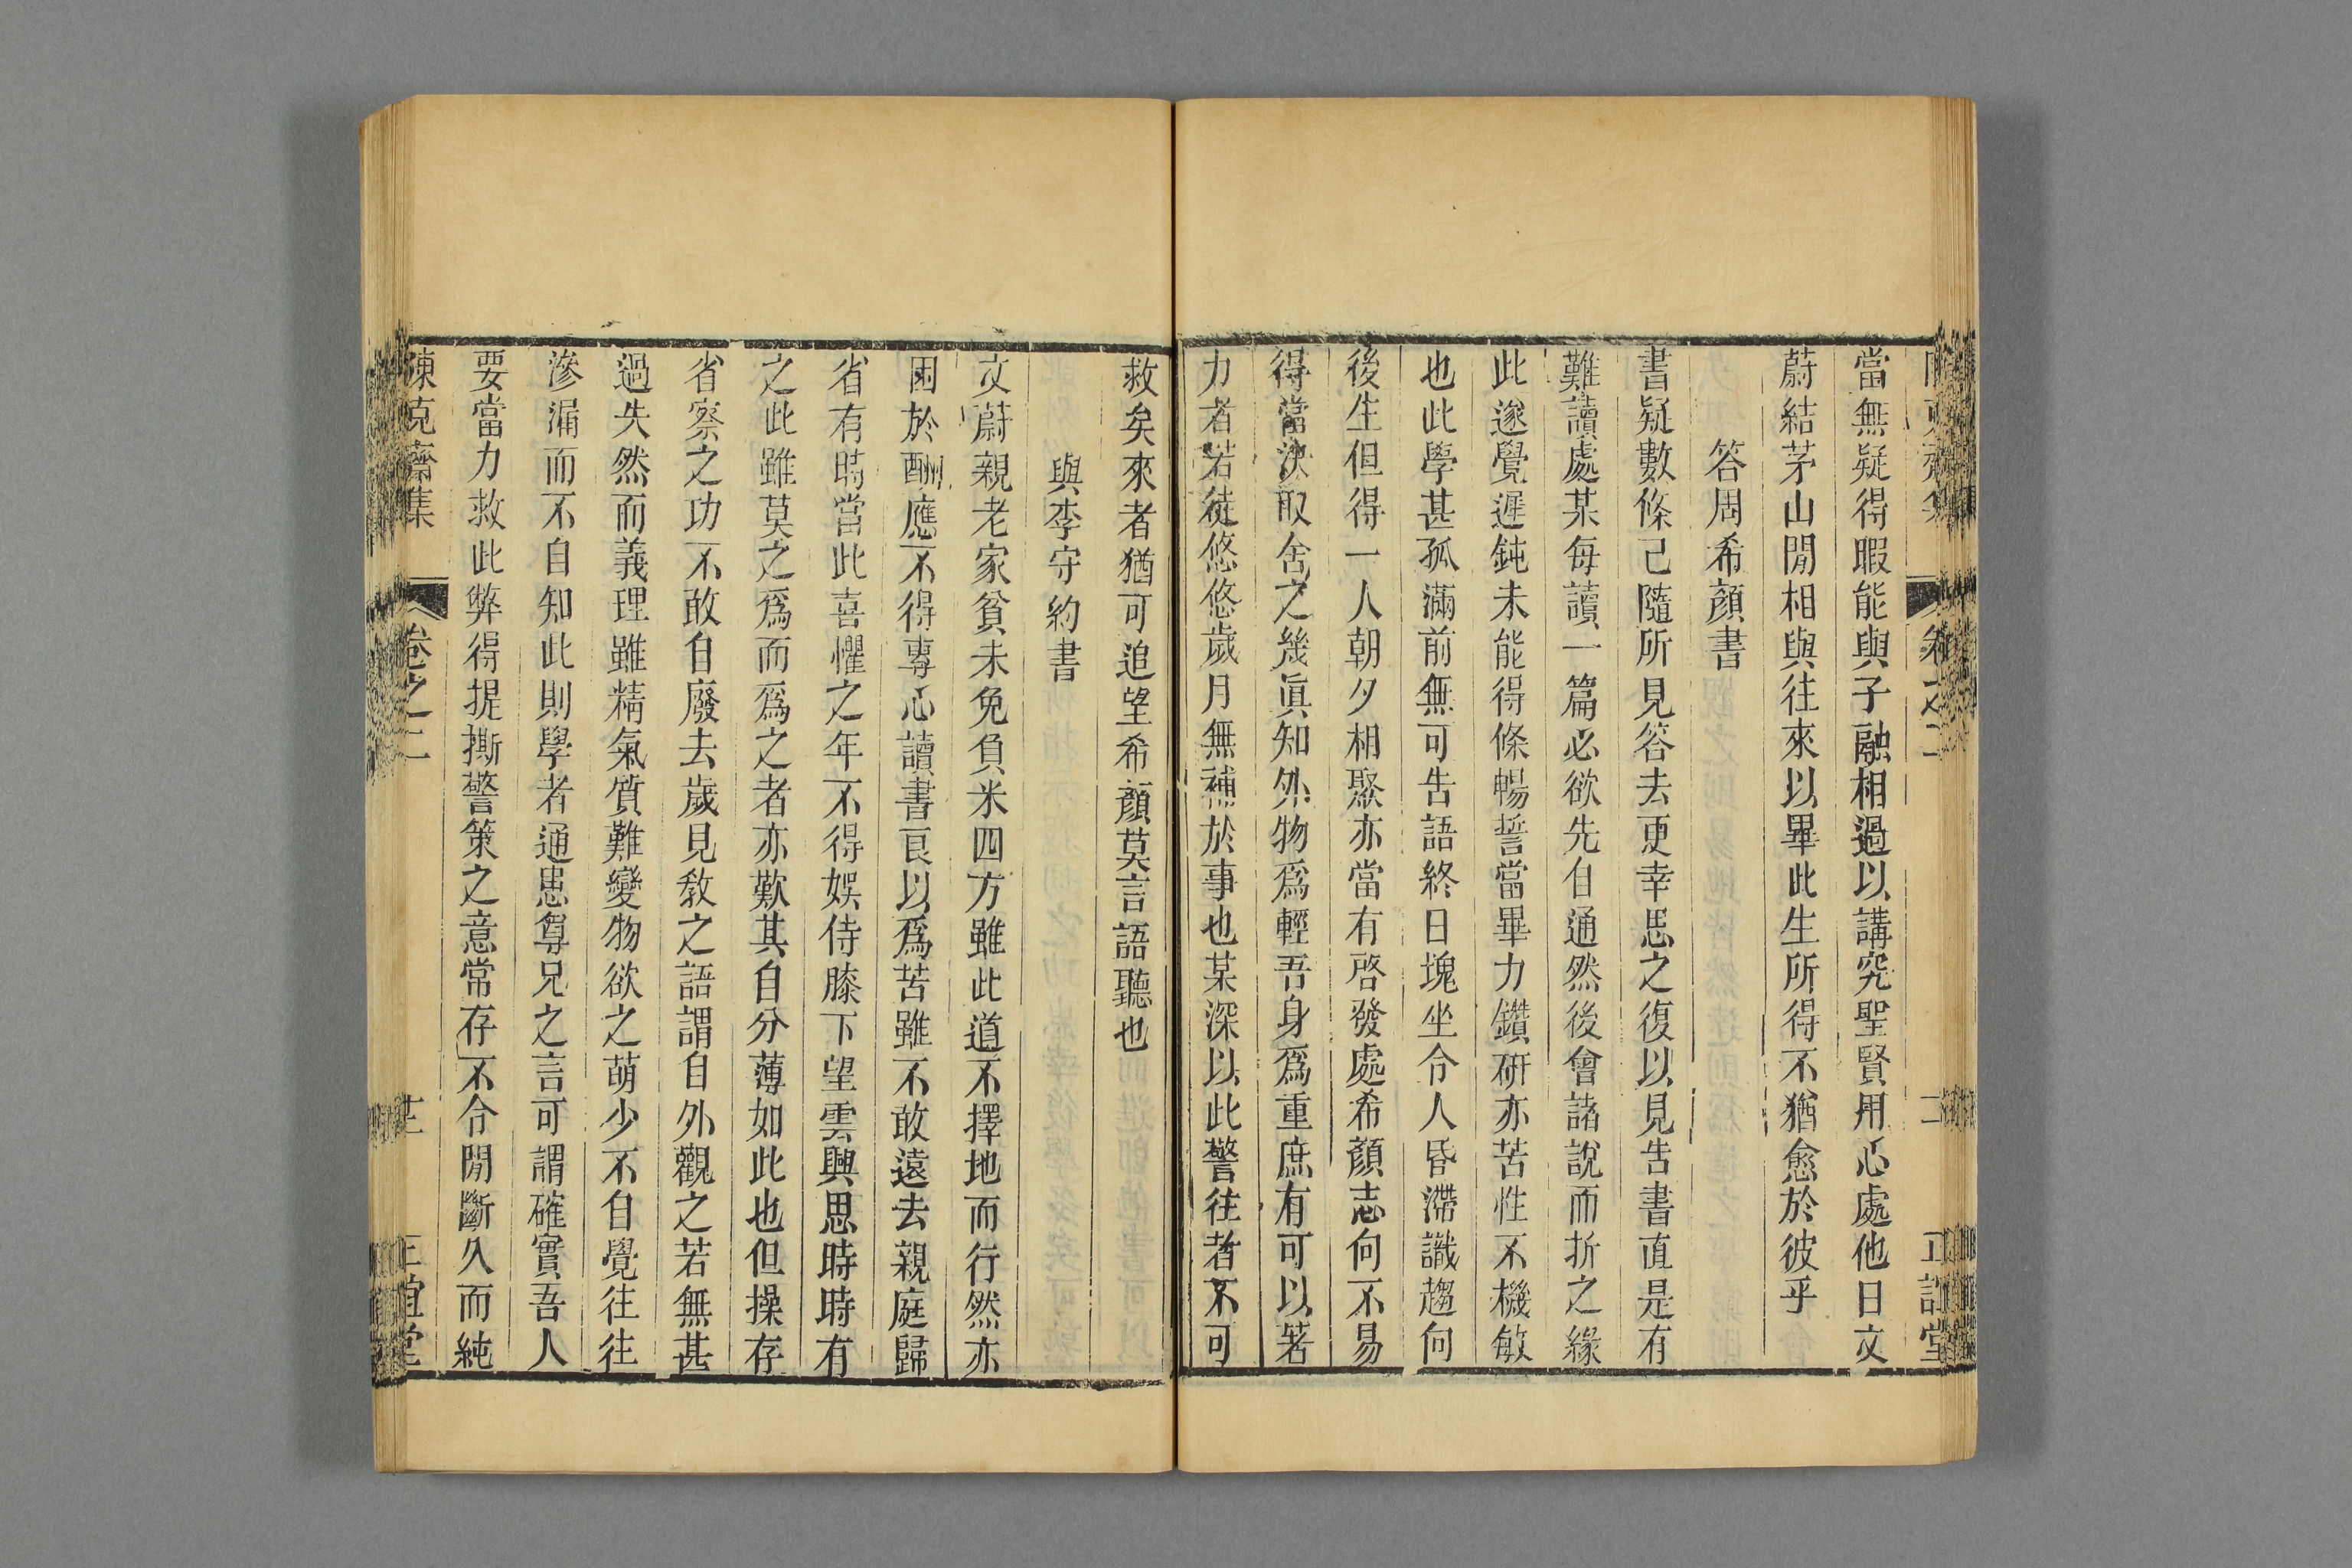 當無疑得暇能與子融相過以講究聖賢用心處他日文
蔚結茅山閒相與往來以畢此生所得不猶愈於彼乎
答周希顏書
書疑數條已隨所見答去更幸思之復以見告書直是有
難讀處某每讀一篇必欲先自通然後會諸說而折之緣
此遂覺遲鈍未能得條暢誓當畢力鑽研亦苦性不機敏
也此學甚孤滿前無可告語終日塊坐令人昏滯識趨向
後生但得一人朝夕相聚亦當有啓發處希顏志向不易
得當決取舍之幾眞知外物爲輕吾身爲重庶有可以著
力者若徒悠悠歲月無補於事也某深以此警往者不可
救矣來者猶可追望希顏莫言語聽也
與李守約書
文蔚親老家貧未免負米四方雖此道不擇地而行然亦
困於酬應不得專心讀書良以爲苦雖不敢遠去親庭歸
省有時當此喜懼之年不得娛侍膝下望雲興思時時有
之此雖莫之爲而爲之者亦歎其自分薄如此也但操存
省察之功不敢自廢去歲見敎之語謂自外觀之若無甚
過失然而義理雖精氣質難變物欲之萌少不自覺往往
滲漏而不自知此則學者通患尊兄之言可謂確實吾人
要當力救此弊得提撕警策之意常存不令閒斷久而純
陳克齋集 卷之二 正誼堂